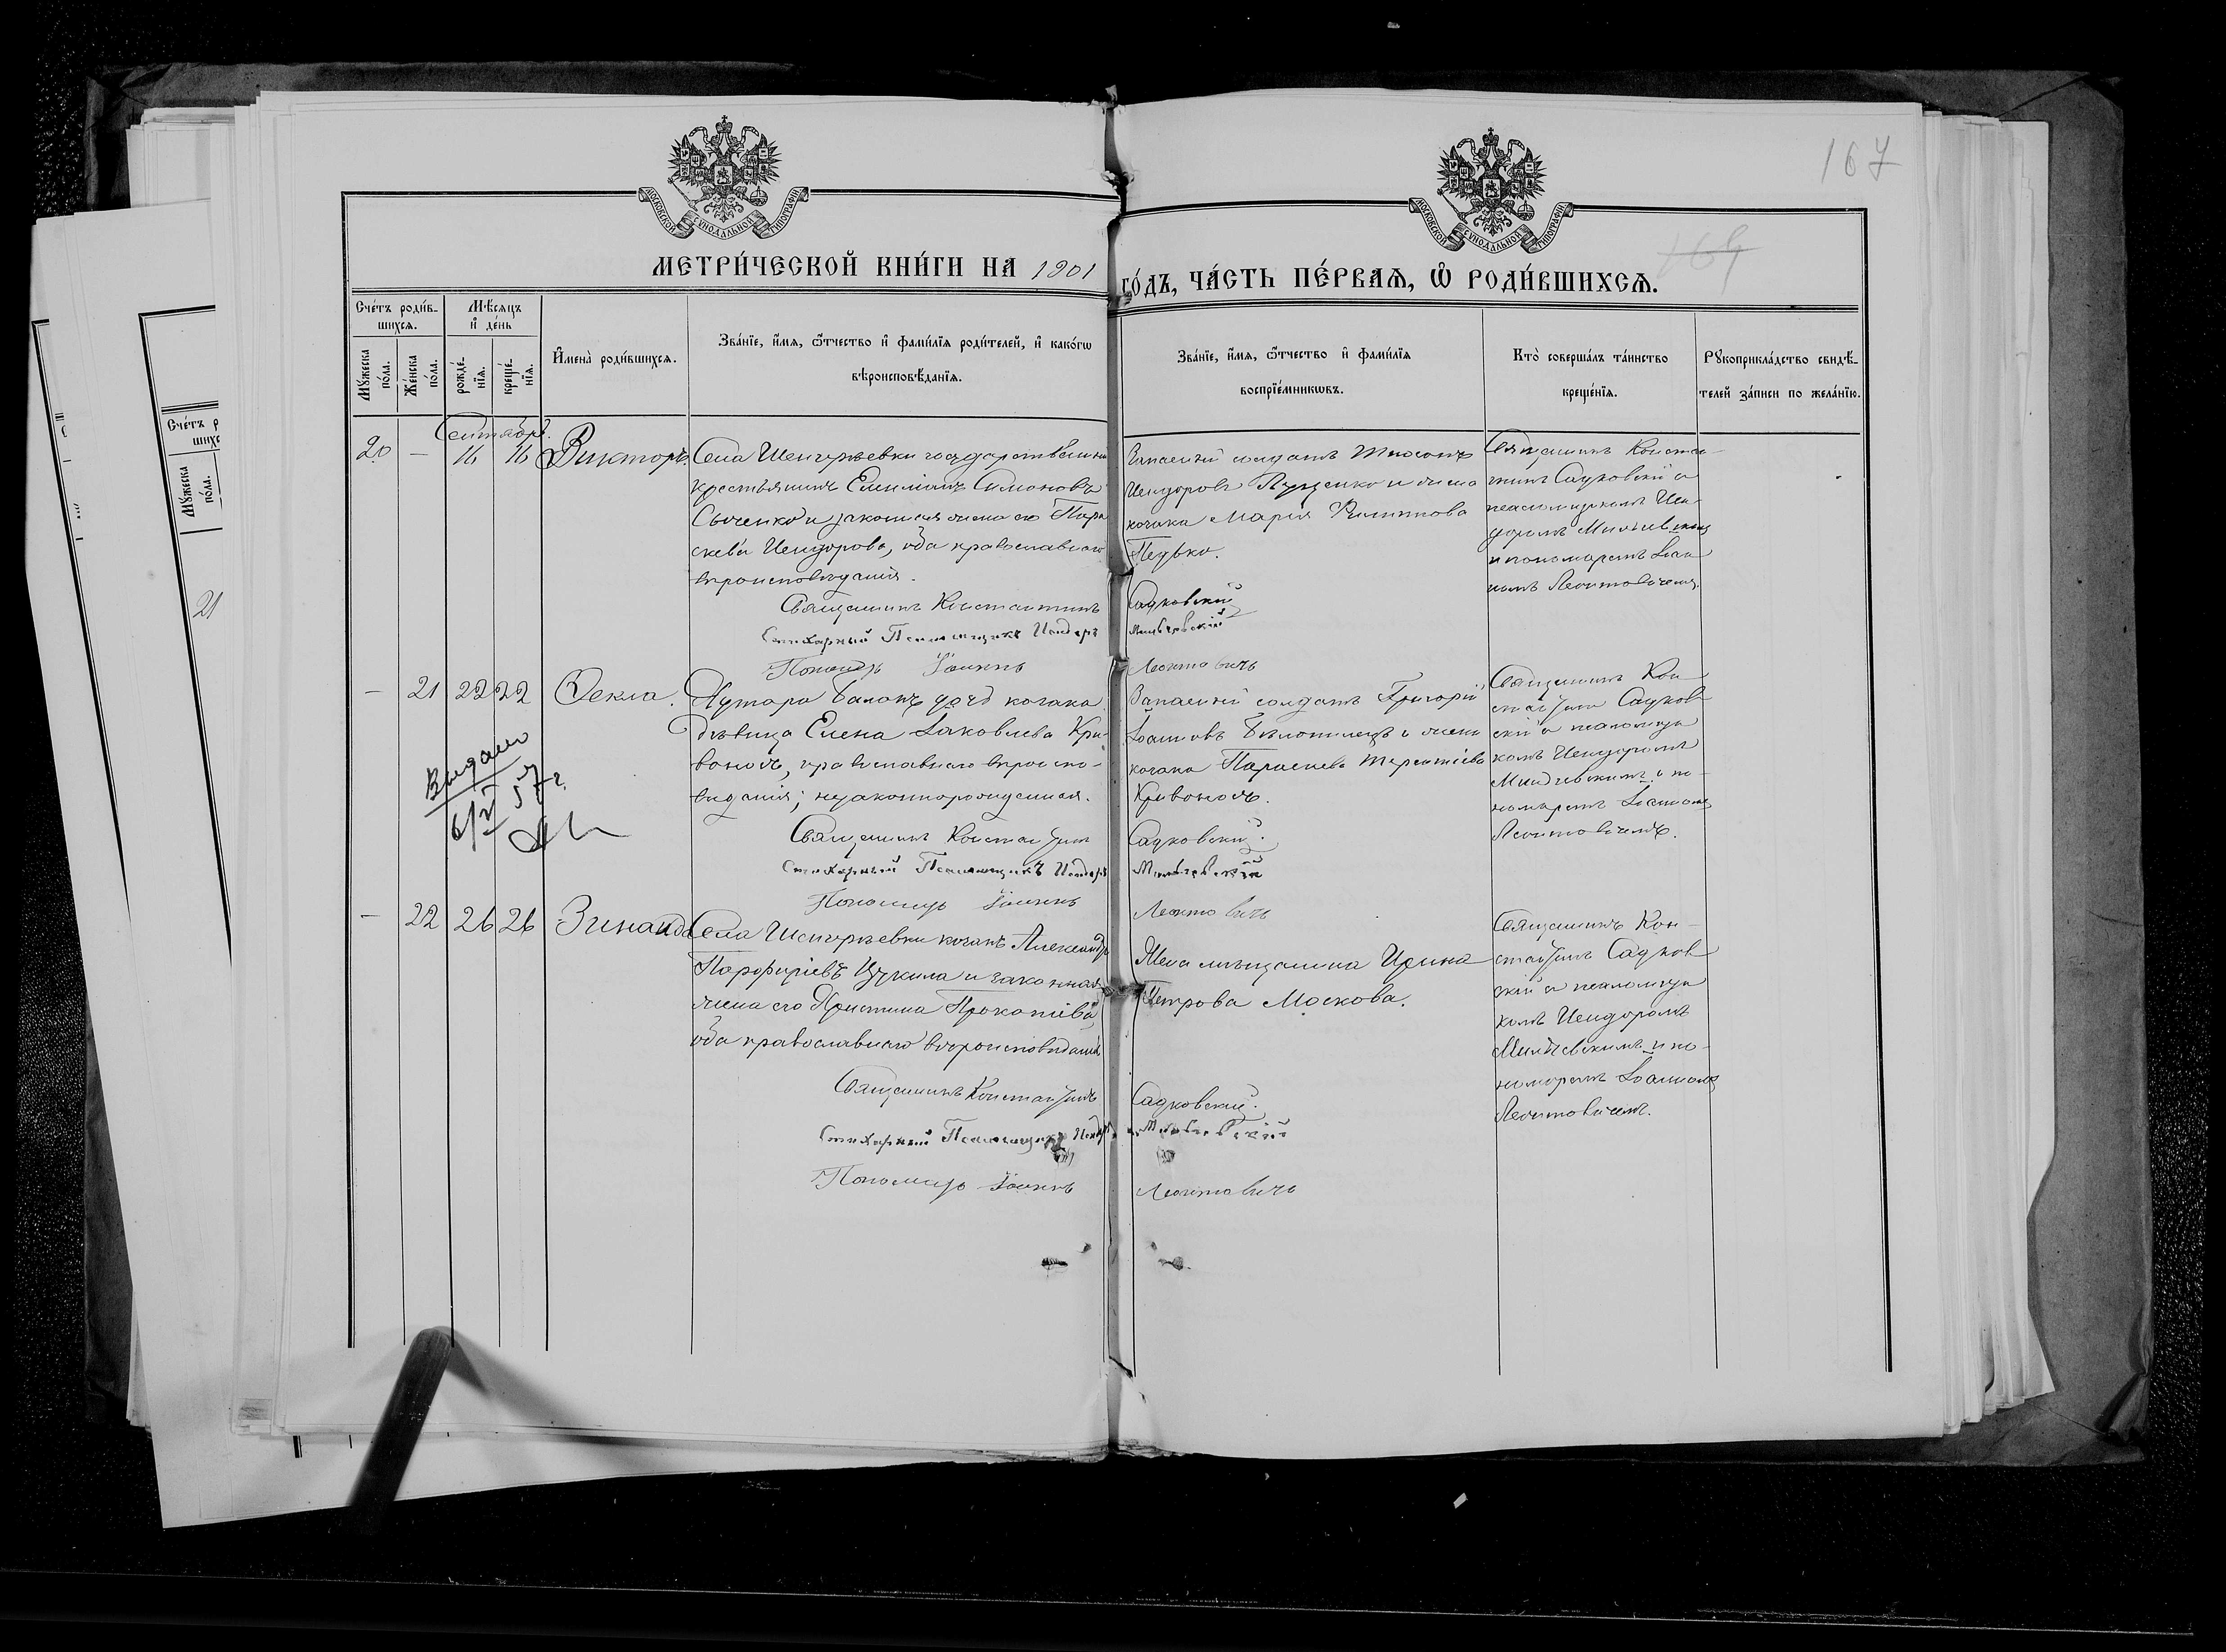 167
169
МОСКОВСКОЙ СУНОДАЛЬНОЙ ТИПОГРАФІИ
МОСКОВСКОЙ СУНОДАЛЬНОЙ ТИПОГРАФІИ
МЕТРИ́ЧЕСКОЙ КНИ́ГИ НА 1901
ГО́ДЪ, ЧА́СТЬ ПЕ́РВАѦ, Ѡ҆ РОДИ́ВШИХСѦ.
Сче́тъ роди́в-
шихсѧ.
Мѣ́сѧцъ
и҆ де́нь
Мꙋ́жеска
по́ла.
Же́нска
по́ла.
рожде́-
нїѧ.
креще́-
нїѧ.
И҆мена̀ роди́вшихсѧ.
Зва́нїе, и҆́мѧ, ѻ҆́тчество и҆ фами́лїѧ роди́телей, и҆ како́гѡ
вѣроисповѣ́данїѧ.
Зва́нїе, и҆́мѧ, ѻ҆́тчество и҆ фами́лїѧ
воспрїе́мникѡвъ.
Кто̀ соверша́лъ та́инство
креще́нїѧ.
Рꙋкоприкла́дство свидѣ́-
телей за́писи по жела́нїю.
Сентябрь.
20 — 16 16 Викторъ.
Села Шенгурѣевки государственный
крестьянинъ Емиліанъ Симоновъ
и законная жена его Пара
скева Исидорова, оба православнаго
вѣроисповѣданія.
Священникъ Константинъ
Стихарный Псаломщикъ Исидоръ
Пономарь Іоаннъ
Запасный солдатъ
Исидоровъ Луценко и жена
козака Марія Филиппова
Педько.
Садковскій
Мильчевскій
Леонтовичъ
Священникъ Констан-
тинъ Садковскій съ
псаломщикомъ Иси
доромъ Мильчевскимъ
и пономаремъ Іоан
номъ Леонтовичемъ.
— 21 22 22 Ѳекла.
Хутора дочь козака
дѣвица Елена Іаковлева Кри-
воносъ, православнаго вѣроиспо-
вѣданія; незаконнорожденная.
Священникъ Константинъ
Стихарный Псаломщикъ Исидоръ
Пономарь Іоаннъ
Запасный солдатъ Григорій
Іоанновъ и жена
козака Параскева Терентіева
Кривоносъ.
Садковскій.
Мильчевскій
Леонтовичъ
Священникъ Кон-
стантинъ Садков
скій съ псаломщи
комъ Исидоромъ
Мильчевскимъ и по-
номаремъ Іоанномъ
Леонтовичемъ.
Выдано
57 г.
— 22 26 26 Зинаида
Села Шенгурѣевки козакъ Александръ
Порфиріевъ Цукила и законная
жена его Христина Прокопіева,
оба православнаго вѣроисповѣданія
Священникъ Константинъ
Стихарный Псаломщикъ Исидоръ
Пономарь Іоаннъ
Жена мѣщанина Ирина
Петрова Москова.
Садковскій.
Мильчевскій
Леонтовичъ
Священникъ Кон-
стантинъ Садков
скій съ псаломщи
комъ Исидоромъ
Мильчевскимъ и по-
номаремъ Іоанномъ
Леонтовичемъ.
Мꙋ́жеска
по́ла.
21